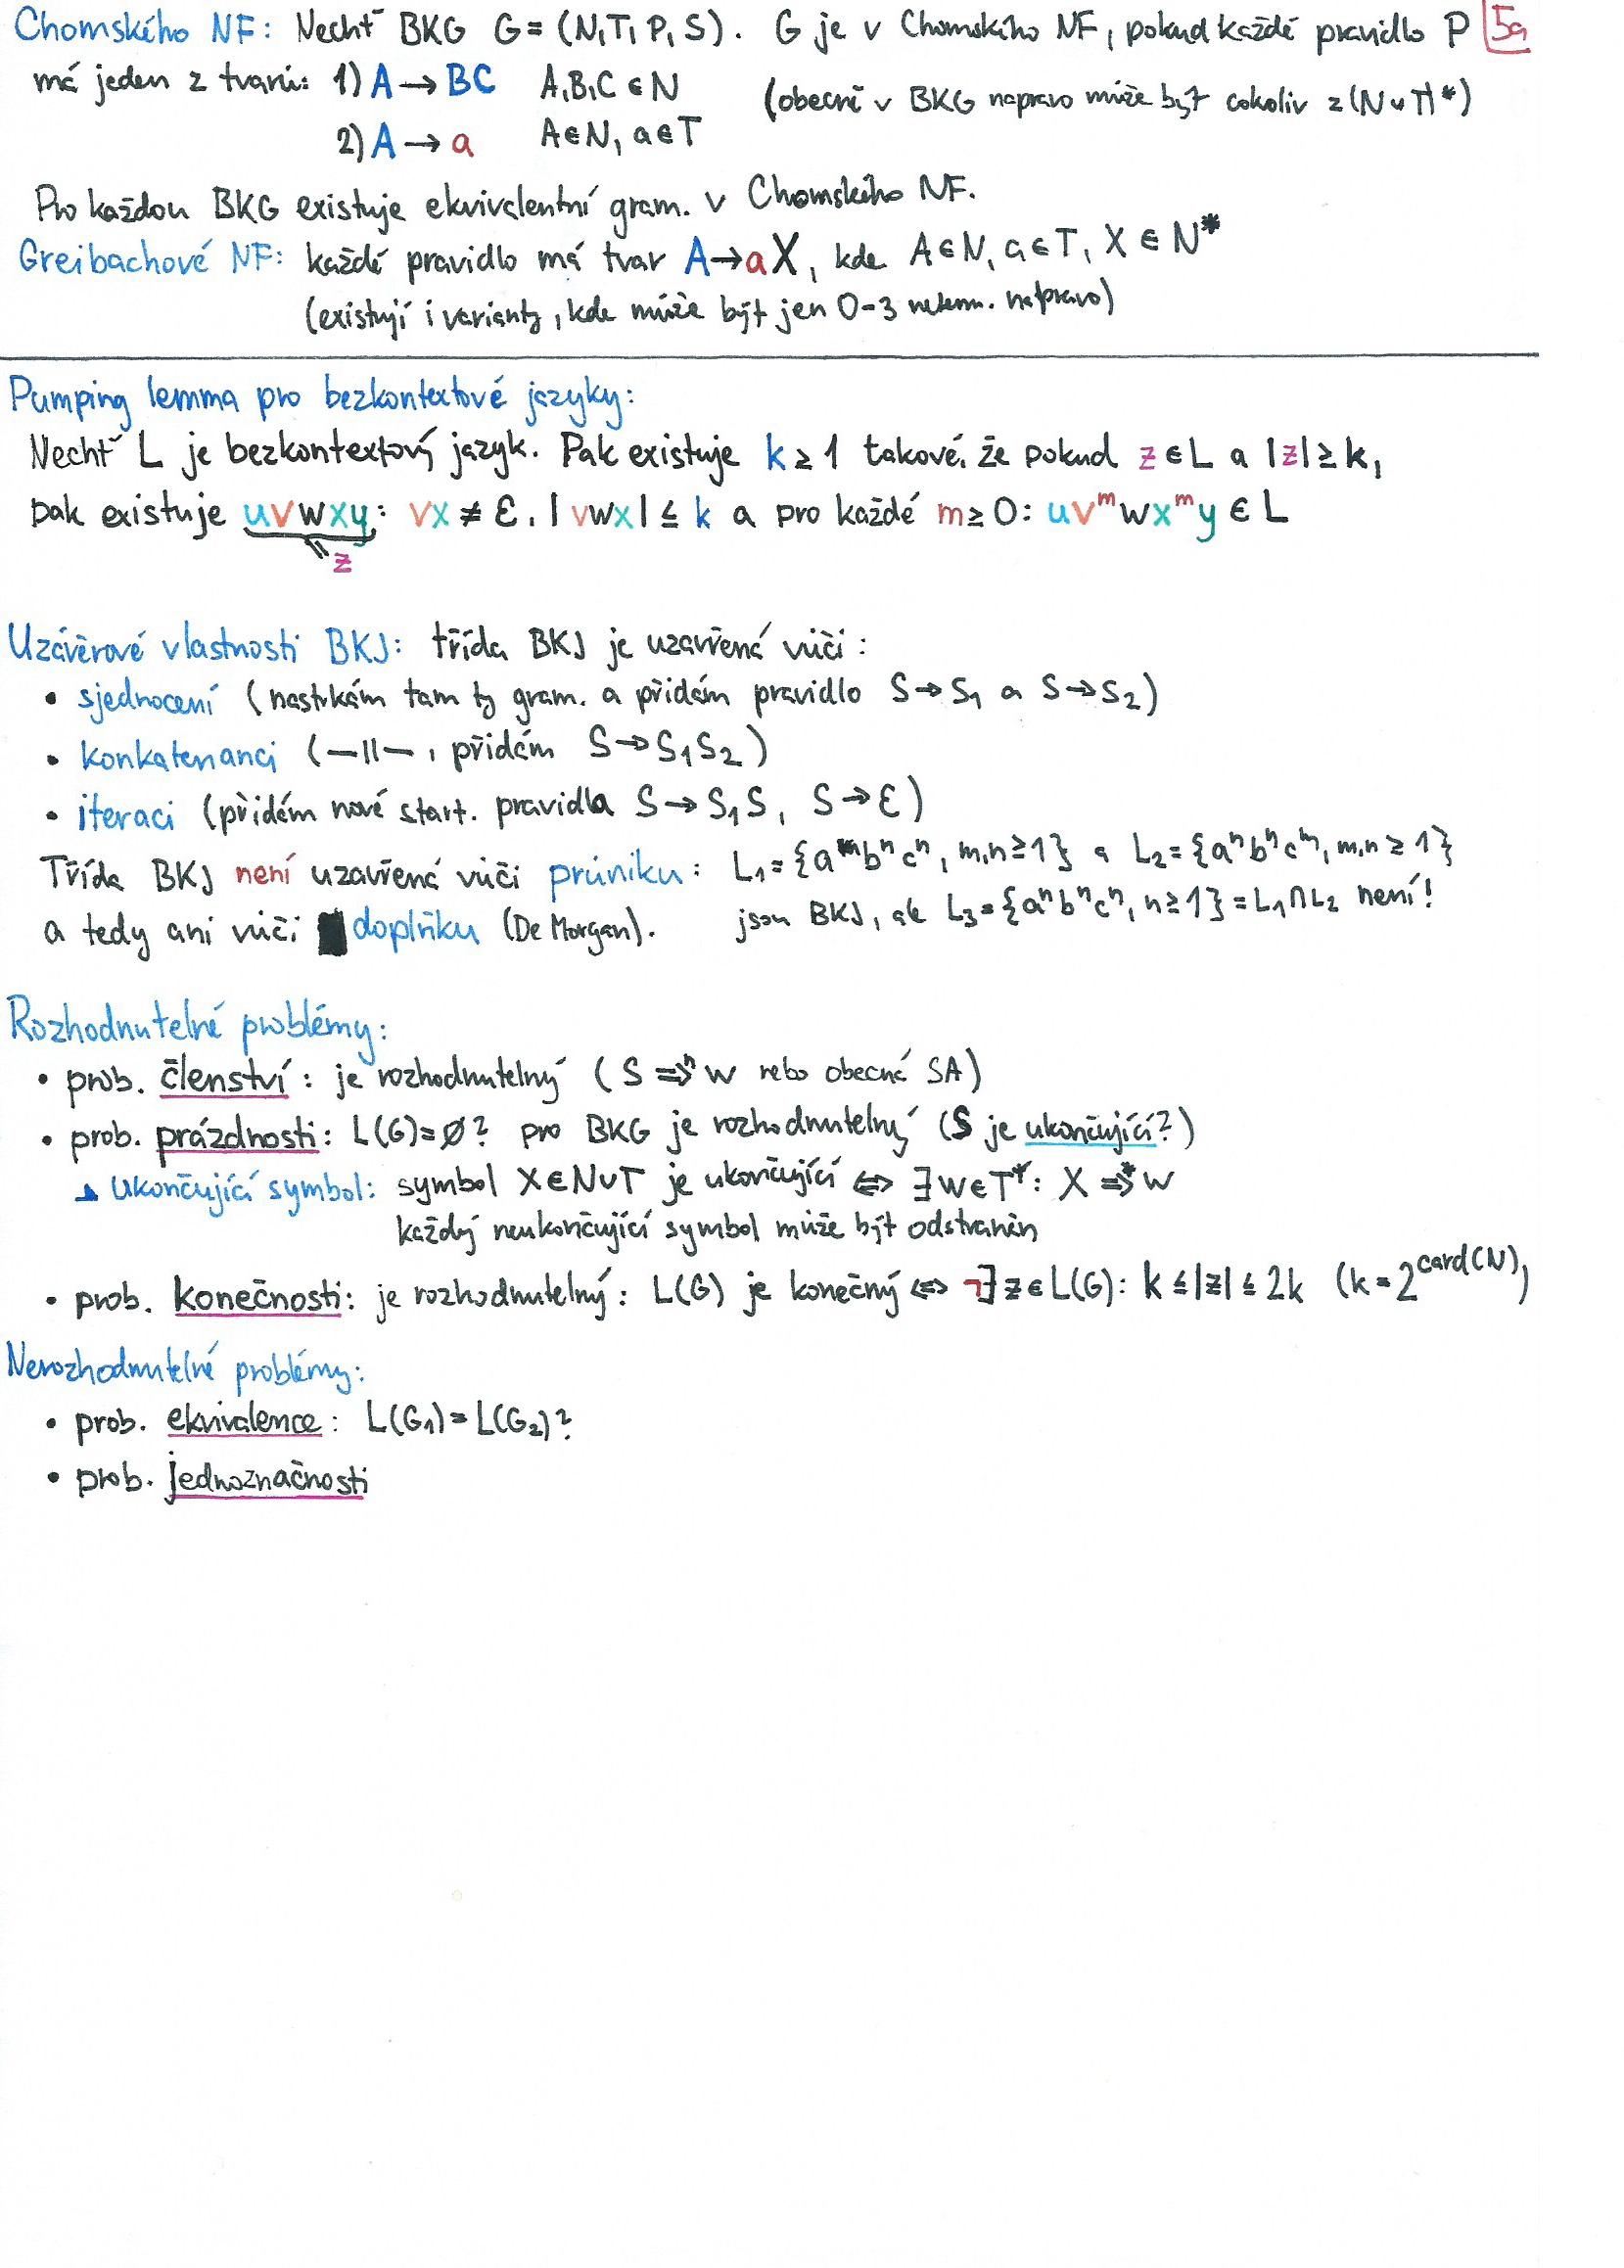 Chomského NF: Nechť BKG G = (N, T, P, S). G je v Chomského NF, pokud každé pravidlo P 5a
má jeden z tvarů: 1) A → BC A, B, C ∈ N (obecně v BKG napravo může být cokoliv z (N ∪ T)*)
2) A → a A ∈ N, a ∈ T
Pro každou BKG existuje ekvivalentní gram. v Chomského NF.
Greibachové NF: každé pravidlo má tvar A → aX, kde A ∈ N, a ∈ T, X ∈ N*
(existují i varianty, kde může být jen 0-3 neterm. napravo)
Pumping lemma pro bezkontextové jazyky:
Nechť L je bezkontextový jazyk. Pak existuje k ≥ 1 takové, že pokud z ∈ L a |z| ≥ k,
pak existuje uvwxy: vx ≠ ε, |vwx| ≤ k a pro každé m ≥ 0: uvᵐwxᵐy ∈ L
= z
Uzávěrové vlastnosti BKJ: třída BKJ je uzavřená vůči:
• sjednocení (nastrkám tam ty gram. a přidám pravidlo S → S₁ a S → S₂)
• konkatenanci (—||—, přidám S → S₁S₂)
• iteraci (přidám nové start. pravidla S → S₁S, S → ε)
Třída BKJ není uzavřená vůči průniku: L₁ = {aᵐbⁿcⁿ, m,n ≥ 1} a L₂ = {aⁿbⁿcᵐ, m,n ≥ 1}
a tedy ani vůči doplňku (De Morgan). jsou BKJ, ale L₃ = {aⁿbⁿcⁿ, n ≥ 1} = L₁ ∩ L₂ není!
Rozhodnutelné problémy:
• prob. členství: je rozhodnutelný (S ⇒ⁿ w nebo obecná SA)
• prob. prázdnosti: L(G) = ∅? pro BKG je rozhodnutelný (S je ukončující?)
▲ Ukončující symbol: symbol X ∈ N ∪ T je ukončující ⇔ ∃ w ∈ T*: X ⇒* w
každý neukončující symbol může být odstraněn
• prob. konečnosti: je rozhodnutelný: L(G) je konečný ⇔ ¬∃ z ∈ L(G): k ≤ |z| ≤ 2k (k = 2^card(N))
Nerozhodnutelné problémy:
• prob. ekvivalence: L(G₁) = L(G₂)?
• prob. jednoznačnosti